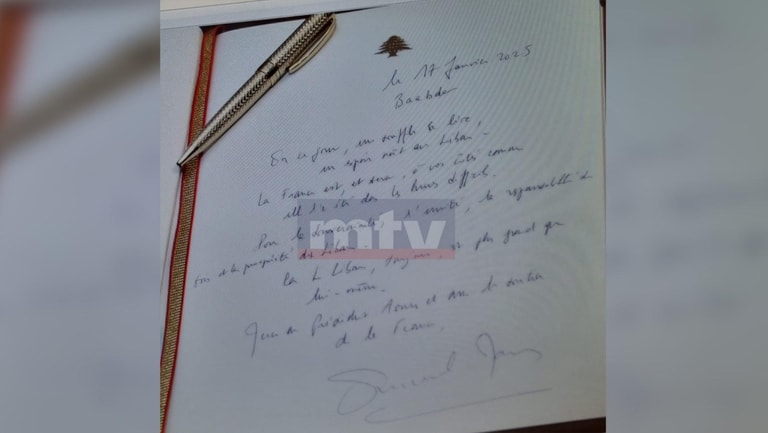 le 17 Janvier 2025
Baabda
En ce jour, un souffle se lève,
un espoir naît au Liban.
La France est, et sera, à vos côtés comme
elle l'a été dans les heures difficiles.
Pour la souveraineté, l'unité, la responsabilité de
tous et la prospérité du Liban.
Car le Liban, toujours, est plus grand que
lui-même.
au Président Aoun et avec le soutien
de la France,
mtv